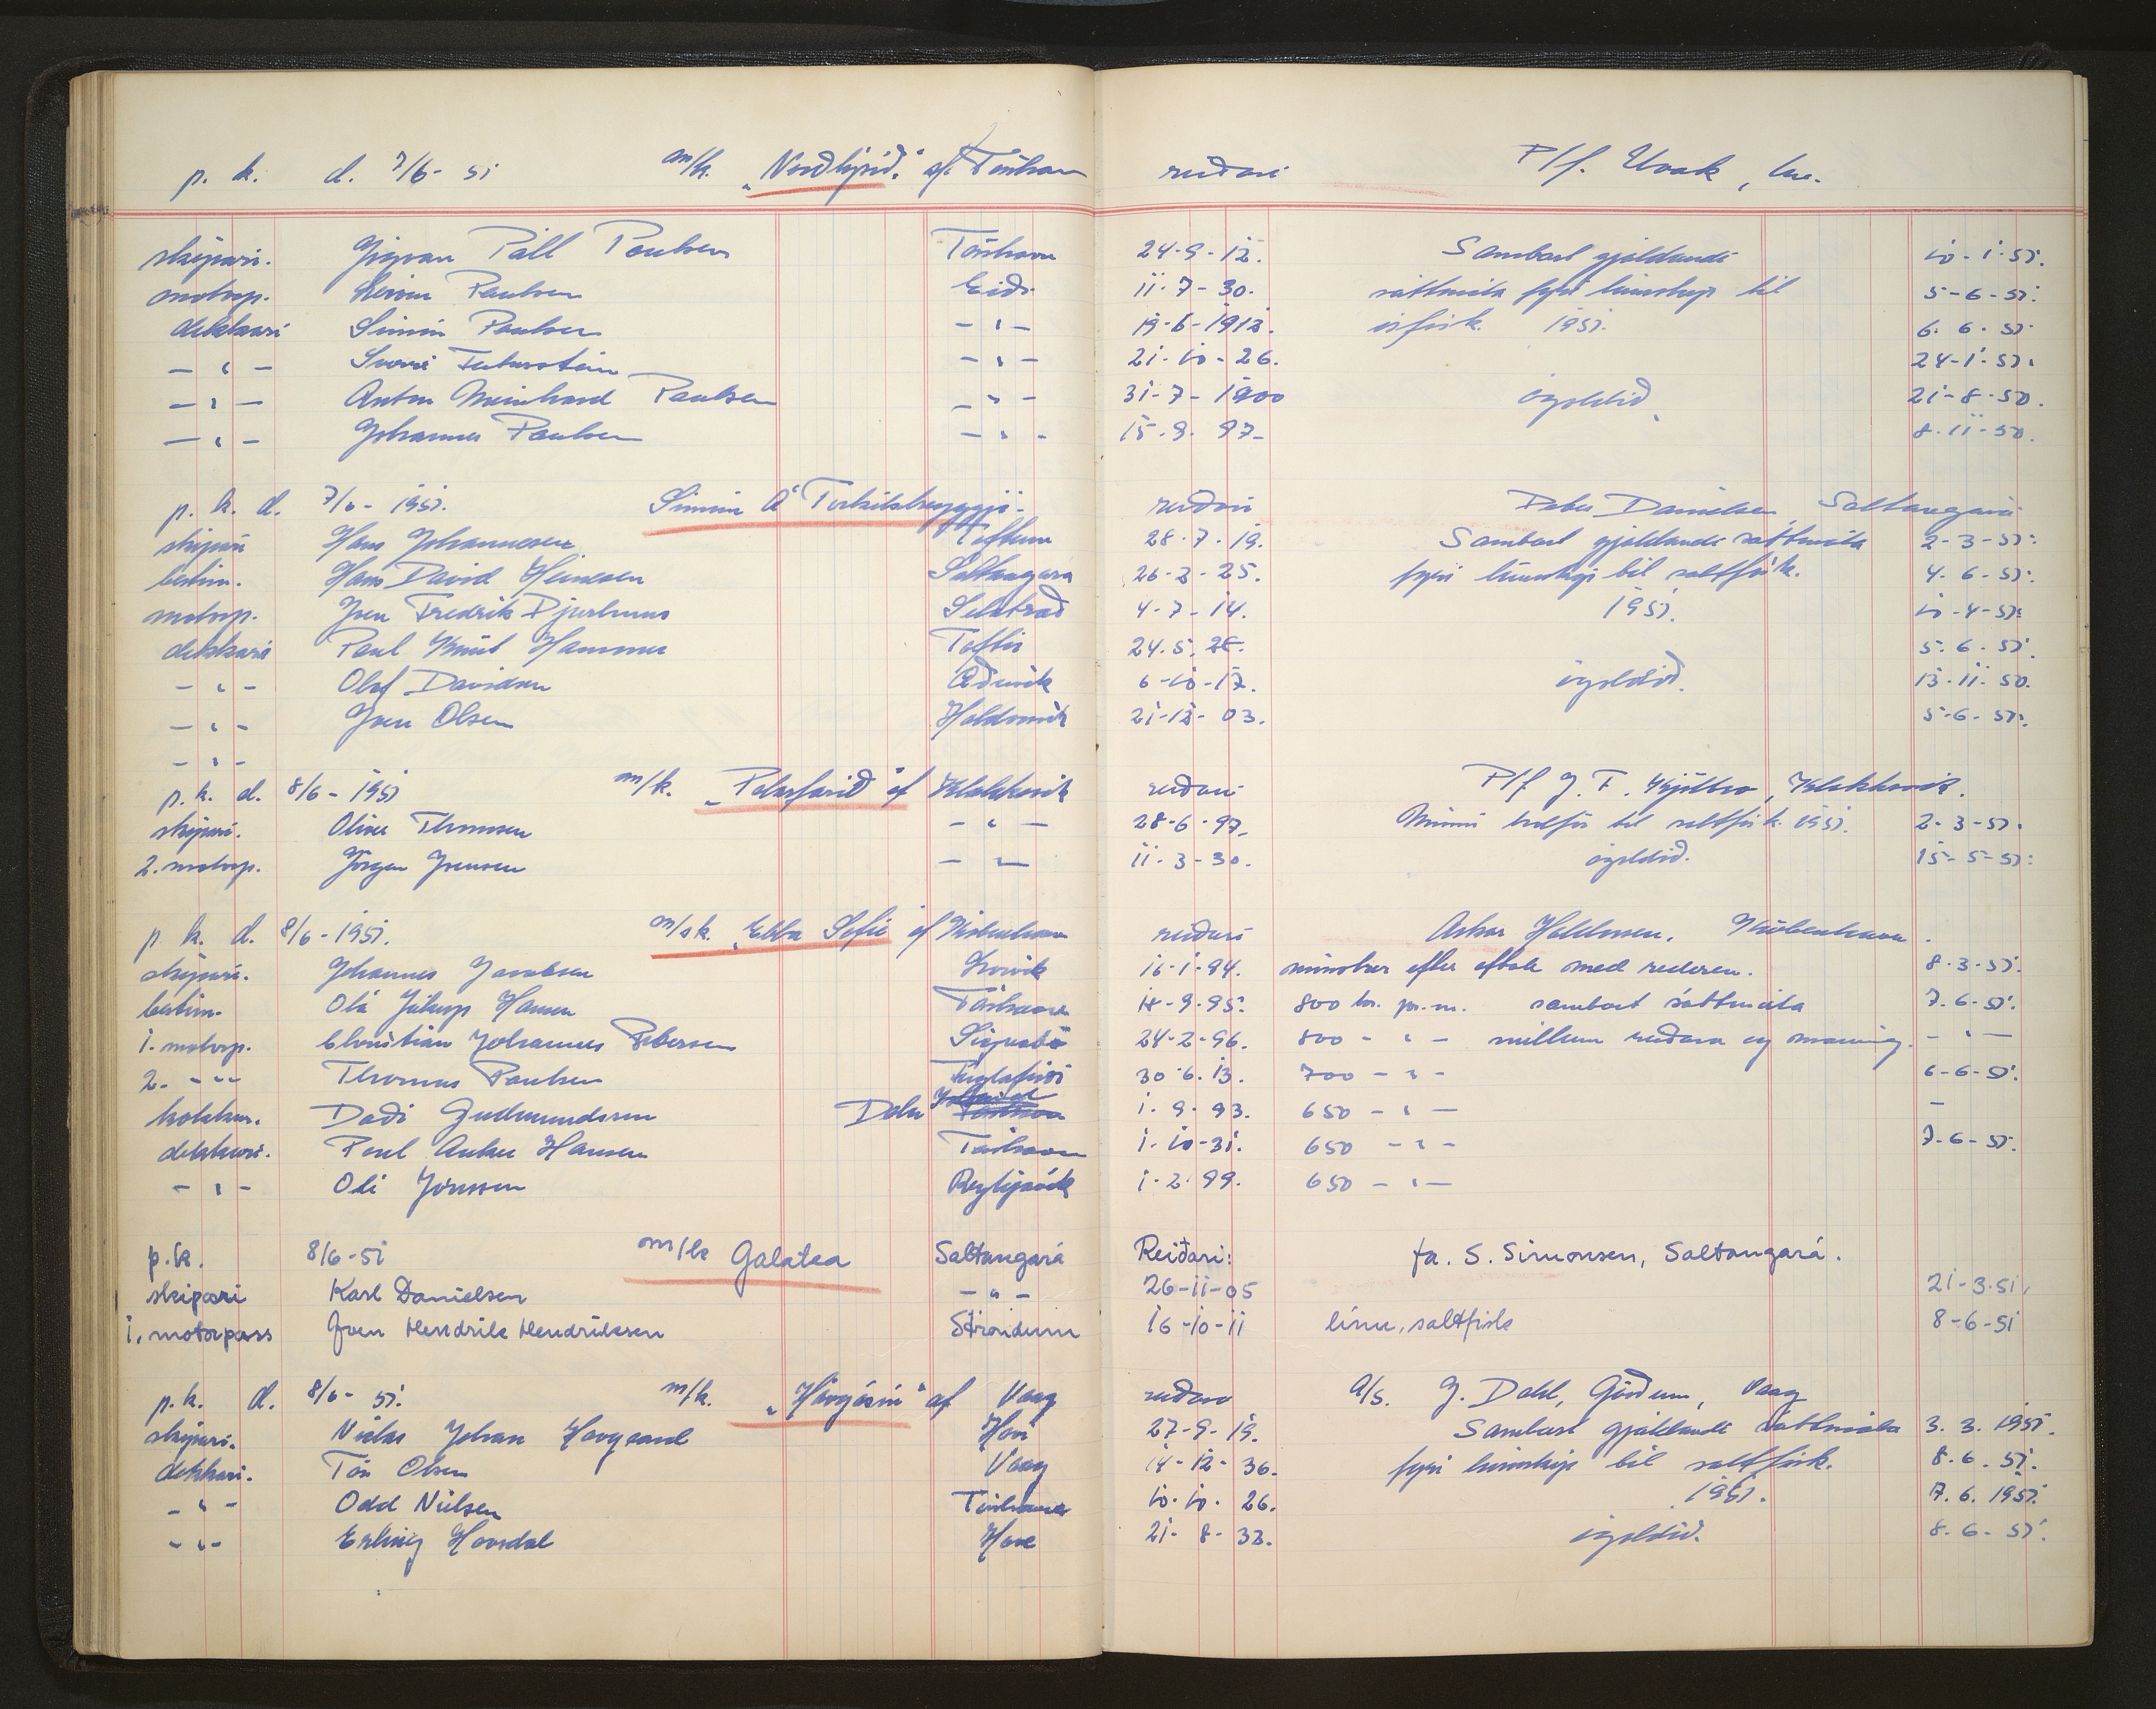 p. k. d. 7/6- 51 m/k. „Norðlýsið“ af Tórshavn reiðari P/f. Uvak, Tvø.
skipari. Jógvan Páll Poulsen Tórshavn 24-9-12. Sambært gjaldandi 10-1-51.
motorp. Poulsen Eiði 11-7-30. sáttmála fyri línuskip til 5-6-51.
dekkari Símun Poulsen - " - 19-6-1912. ísfisk. 1951. 6. 6. 51.
- " - - " - 21-10-26. 24-1-51.
- " - Anton Meinhard Poulsen - " - 31-7-1900 ógoldið. 21-8-50.
- " - Johannes Poulsen - " - 15-9-97- 8-11-50.
p. k. d. 7/6- 1951. Símun á Torkilsheyggi. reiðari Peter Danielsen, Saltangará
skipari Hans Johannesen Toftum 28-7-19. Sambært gjaldandi sáttmála 2-3-51.
bestim. Hans David Heinesen Saltangara 26-2-25. fyri línuskip til saltfisk. 4-6-51.
motorp. Jens Fredrik Djurhuus Selatrað 4-7-14. 1951. 10-4-51.
dekkari Poul Knút Hammer Toftir 24.5. 5-6-51.
- " - Olaf Davidsen Æðuvík 6-10-17. ógoldið. 13-11-50.
- " - Jens Olsen Haldorsvík 21-12-03. 5-6-51.
- " -
p. k. d. 8/6-1951 m/k. „Polarfarið“ af Klakksvík reiðari P/f J. F. Kjølbro, Klakksvík.
skipari. Oliver Thomsen - " - 28-6-97- til saltfisk 1951. 2-3-51.
2. motorp. Jørgen Joensen - " - 11-3-30. ógoldið. 15-5-51.
p. k. d. 8/6-1951. m/sk. „Ebba Sofie“ af København reiðari København.
skipari. Johannes Jacobsen Lorvík 16-1-94. mínstur efter aftale med rederen. 8-3-51.
bestim. Óla Jákup Hansen Tórshavn 18-9-95. 800 kr. pr. m. sambært sáttmála 7-6-51.
1. motorp. Christian Johannes Petersen 24-2-96. 800 - " - millum reiðara og manning. - " -
2. - " - Thomas Poulsen Fuglafirði 30-6-13. 700 - " - 6-6-51.
kokkur. Daði Gudmundsson 1-9-93. 650 - " - -
dekkari. Poul Anker Hansen Tórshavn 1-10-31. 650 - " - 7-6-51.
- " - Oli Jónsson Reykjavík 1-2-99. 650 - " -
p.k. 8/6-51 m/k Galatea Saltangará Reiðari: fa. S. Simonsen, Saltangará.
skipari Karl Danielsen - " - 26-11-05 21-3-51.
1. motorpass Jens Hendrik Hendriksen Strondum 16-10-11 línu, saltfisk 8-6-51
p. k. d. 8/6- 51. m/k. „Havgásin“ af Vaag reiðari A/S. J. Dahl, Gørðum, Vaag
skipari. Niclas Johan Hovgaard Hovi 27-9-19. Sambært gjaldandi sáttmála 3. 3. 1951.
dekkari. Olsen Vaag 14-12-36. fyri línuskip til saltfisk. 8. 6. 51.
- " - Odd Nielsen Tórshavn 10. 10. 26. 1951. 7. 6. 1951.
- " - Erling Hovdal Hove 21-8-32. ógoldið. 8-6-51.